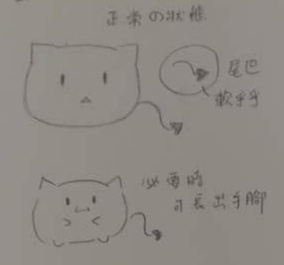 正常の狀態
尾巴
軟乎乎
必要時
可長出手腳